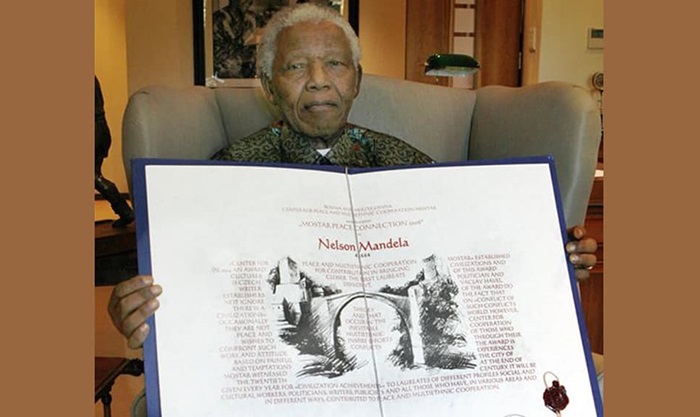 BOSNIA AND HERZEGOVINA
CENTER FOR PEACE AND MULTIETHNIC COOPERATION MOSTAR
„MOSTAR PEACE CONNECTION
Nelson Mandela
CENTER FOR PEACE AND MULTIETHNIC COOPERATION MOSTAR ESTABLISHED
AN AWARD FOR CONTRIBUTION IN BRINGING CIVILIZATIONS AND
CULTURE CLOSER. THE PAST LAUREATE OF THIS AWARD
IS CZECH POLITICIAN AND
WRITER VACLAV HAVEL
ESTABLISHES OF THE AWARD DO
NOT IGNORE THE FACT THAT
THERE IS A THEORY ON «CONFLICT OF
CIVILIZATIONS» AND THAT SUCH CONFLICTS
OCCASIONALLY OCCUR IN THE WORLD. HOWEVER,
THEY ARE NOT INEVITABLE CENTER FOR
PEACE AND MULTIETHNIC COOPERATION
WISHES TO INSPIRE EFFORTS OF THOSE WHO
CONFRONT SUCH CONFLICTS THROUGH THEIR
WORK AND ATTITUDE. THE AWARD IS
BASED ON PAINFUL EXPERIENCES
AND TEMPTATIONS THE CITY OF
MOSTAR WITNESSED AT THE END OF
THE TWENTIETH CENTURY. IT WILL BE
GIVEN EVERY YEAR FOR «CIVILIZATION ACHIEVEMENTS» TO LAUREATES OF DIFFERENT PROFILES SOCIAL AND
CULTURAL WORKERS, POLITICIANS, WRITERS, PUBLICISTS AND ALL THOSE WHO HAVE, IN VARIOUS AREAS AND
IN DIFFERENT WAYS, CONTRIBUTED TO PEACE AND MULTIETHNIC COOPERATION.